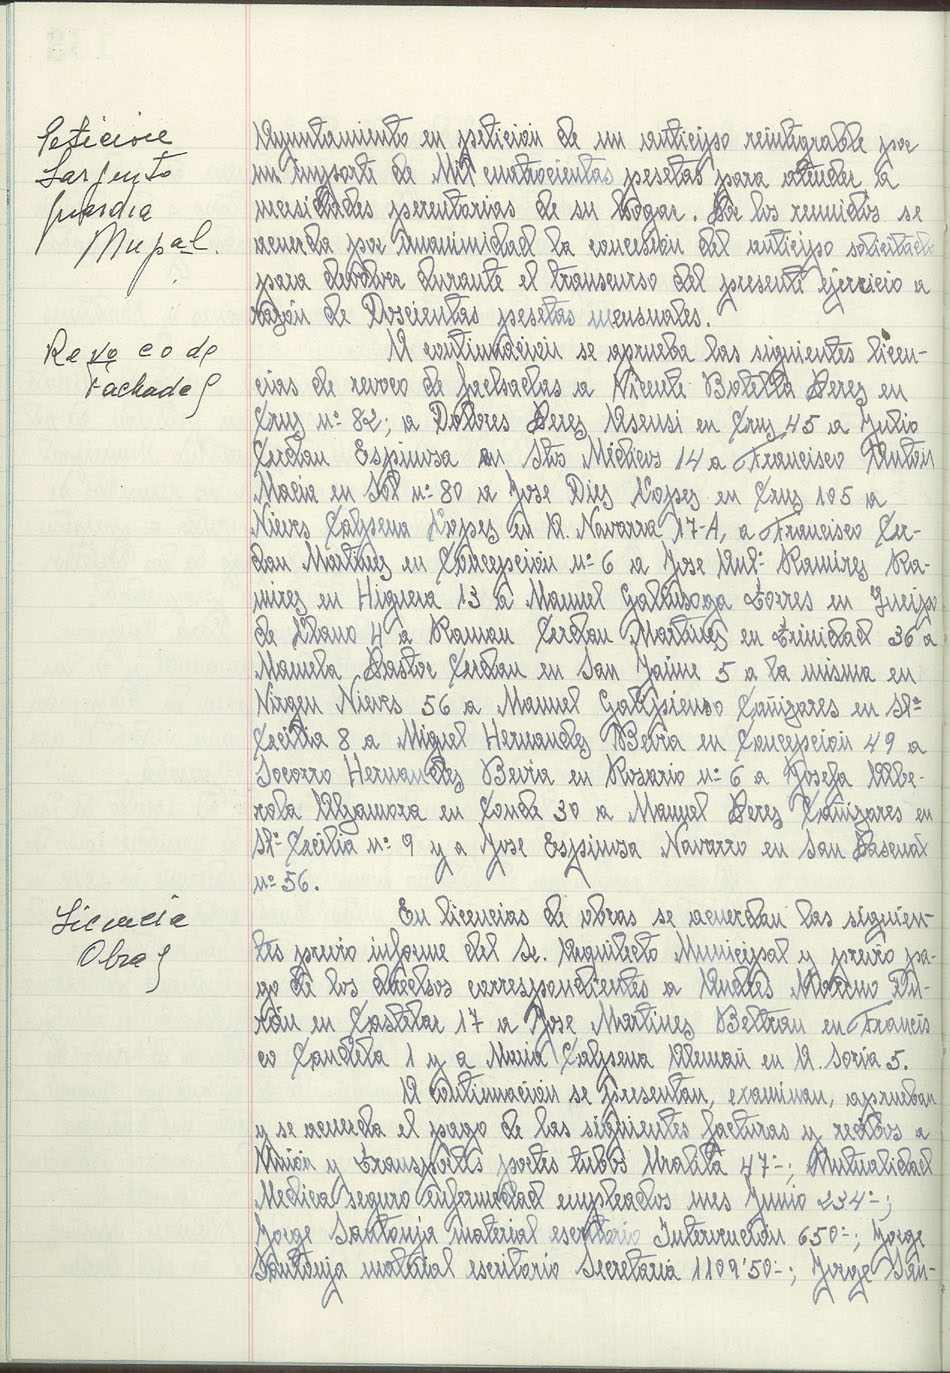 Peticion
Sargento
guardia
Mupal.
Ayuntamiento en peticion de un anticipo reintegrable por
un importe de Mil cuatrocientas pesetas para atender a
necesidades perentorias de su hogar. Por los reunidos se
acuerda por unanimidad la concesión del anticipo solicitado
para devolver durante el transcurso del presente ejercicio a
razón de Doscientas pesetas mensuales.
Revoco de
Fachadas
A continuacion se aprueba las siguientes licen-
cias de revoco de fachadas a Vicente Botella Perez en
Cruz nº 82; a Dolores Perez Asensi en Cruz 45 a Julio
Cerdan Espinosa en Stos Médicos 14 a Francisco Antón
Macia en Sol nº 80 a Jose Diez Lopez en Cruz 105 a
Nieves Calpena Lopez en A. Navarra 17-A, a Francisco Cer-
dan Martinez en Concepción nº 6 a Jose Antº Ramirez Ra-
mirez en Higuera 13 a Manuel Galinsoga Torres en Queipo
de Llano 4 a Ramon Cerdan Martinez en Trinidad 36 a
Manuela Pastor Cerdan en San Jaime 5 a la misma en
Virgen Nieves 56 a Manuel Galipienso Cañizares en Stª
Cecilia 8 a Miguel Hernandez Bevia en Concepción 49 a
Socorro Hernandez Bevia en Rosario nº 6 a Josefa Albe-
rola Alzamora en Conde 30 a Manuel Perez Cañizares en
Stª Cecilia nº 9 y a Jose Espinosa Navarro en San Pascual
nº 56.
Licencia
Obras
En licencias de obras se acuerdan las siguien-
tes previo informe del Sr. Arquitecto Municipal y previo pa-
go de los derechos correspondientes a Andrés Moreno Du-
rán en Castelar 17 a Jose Martinez Beltran en Francis
co Candela 1 y a Maria Calpena Alemañ en A. Soria 5.
A continuacion se presentan, examinan, aprueban
y se acuerda el pago de las siguientes facturas y recibos a
Unión y Transportes portes tubos Uralita 47'-; Mutualidad
Medica seguro enfermedad empleados mes Junio 234'-;
Jorge Santonja material escritorio Intervención 650'-; Jorge
Santonja material escritorio Secretaria 1109'50'-; Jorge San-